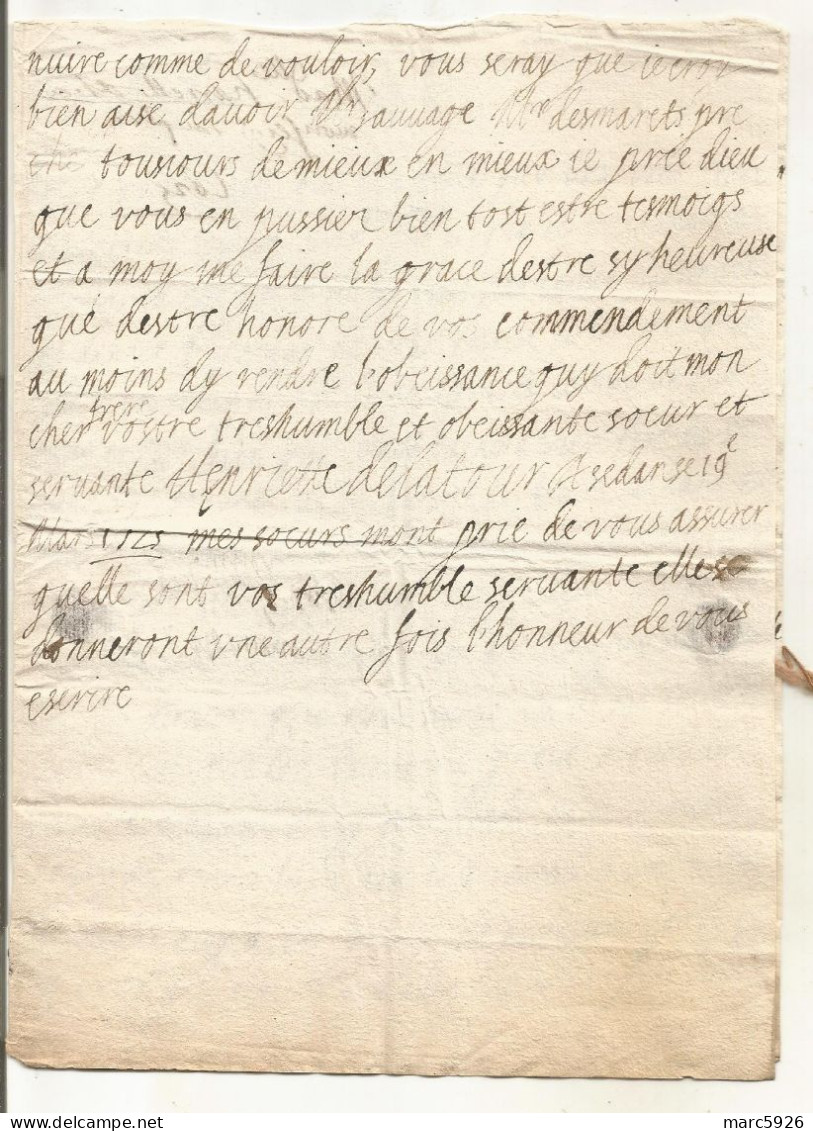 nuire comme de vouloir, vous seray que ie croy
bien aise davoir Mr sauvage Mr desmarets pre
che tousiours de mieux en mieux ie prie dieu
que vous en pussier bien tost estre tesmoigs
et a moy me faire la grace destre sy heureuse
que destre honore de vos commendement
au moins dy rendre l'obeissance quy doit mon
cher frere vostre treshumble et obeissante soeur et
servante Henriette delatour A sedan se 19e
Mars 1625 mes soeurs mont prie de vous assurer
quelle sont vos treshumble servante elle se
donneront vne autre fois l'honneur de vous
escrire
marc5926